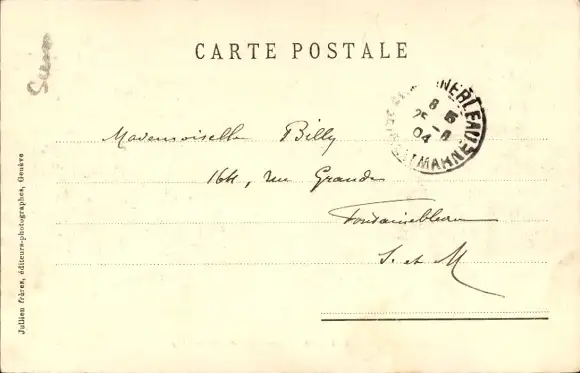 CARTE POSTALE
Mademoiselle Billy
164, rue Grande
Fontainebleau
S. et M
Jullien frères, éditeurs-photographes, Genève
8
25 -8
04
MARNE